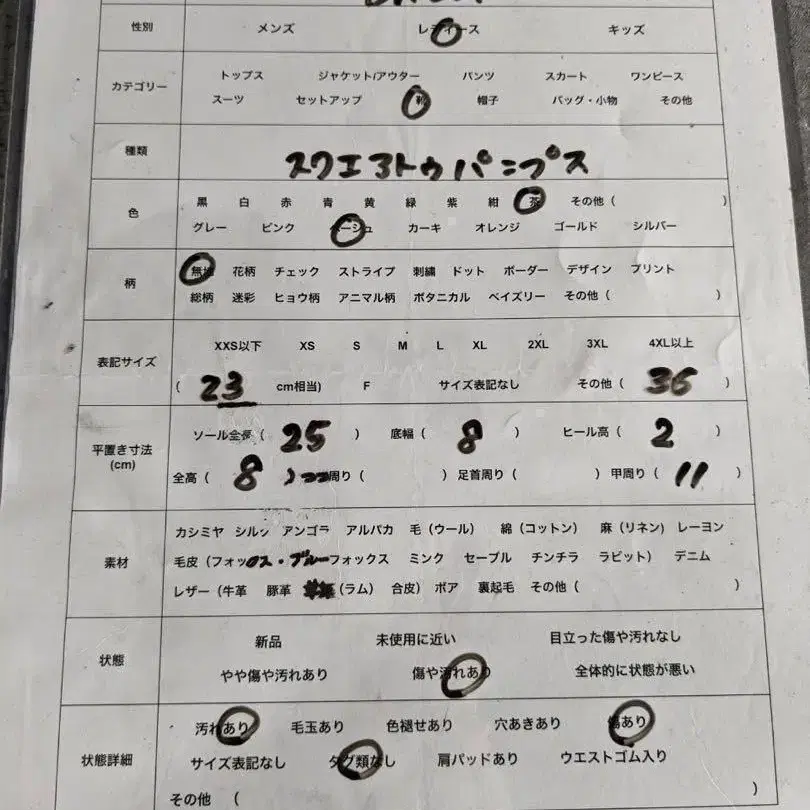 性別 メンズ レディース キッズ
カテゴリー
トップス ジャケット/アウター パンツ スカート ワンピース
スーツ セットアップ 靴 帽子 バッグ・小物 その他
種類 スクエアトゥパンプス
色
黒 白 赤 青 黄 緑 紫 紺 茶 その他 ( )
グレー ピンク ベージュ カーキ オレンジ ゴールド シルバー
柄
無地 花柄 チェック ストライプ 刺繍 ドット ボーダー デザイン プリント
総柄 迷彩 ヒョウ柄 アニマル柄 ボタニカル ペイズリー その他 ( )
表記サイズ
XXS以下 XS S M L XL 2XL 3XL 4XL以上
( 23 cm相当) F サイズ表記なし その他 ( 36 )
平置き寸法
(cm)
ソール全長 ( 25 ) 底幅 ( 8 ) ヒール高 ( 2 )
全高 ( 8 ) 周り ( ) 足首周り ( ) 甲周り ( 11 )
素材
カシミヤ シルク アンゴラ アルパカ 毛 (ウール) 綿 (コットン) 麻 (リネン) レーヨン
毛皮 (フォックス・ブルーフォックス ミンク セーブル チンチラ ラビット) デニム
レザー (牛革 豚革 (ラム) 合皮) ボア 裏起毛 その他 ( )
状態
新品 未使用に近い 目立った傷や汚れなし
やや傷や汚れあり 傷や汚れあり 全体的に状態が悪い
状態詳細
汚れあり 毛玉あり 色褪せあり 穴あきあり 傷あり
サイズ表記なし タグ類なし 肩パッドあり ウエストゴム入り
その他 ( )